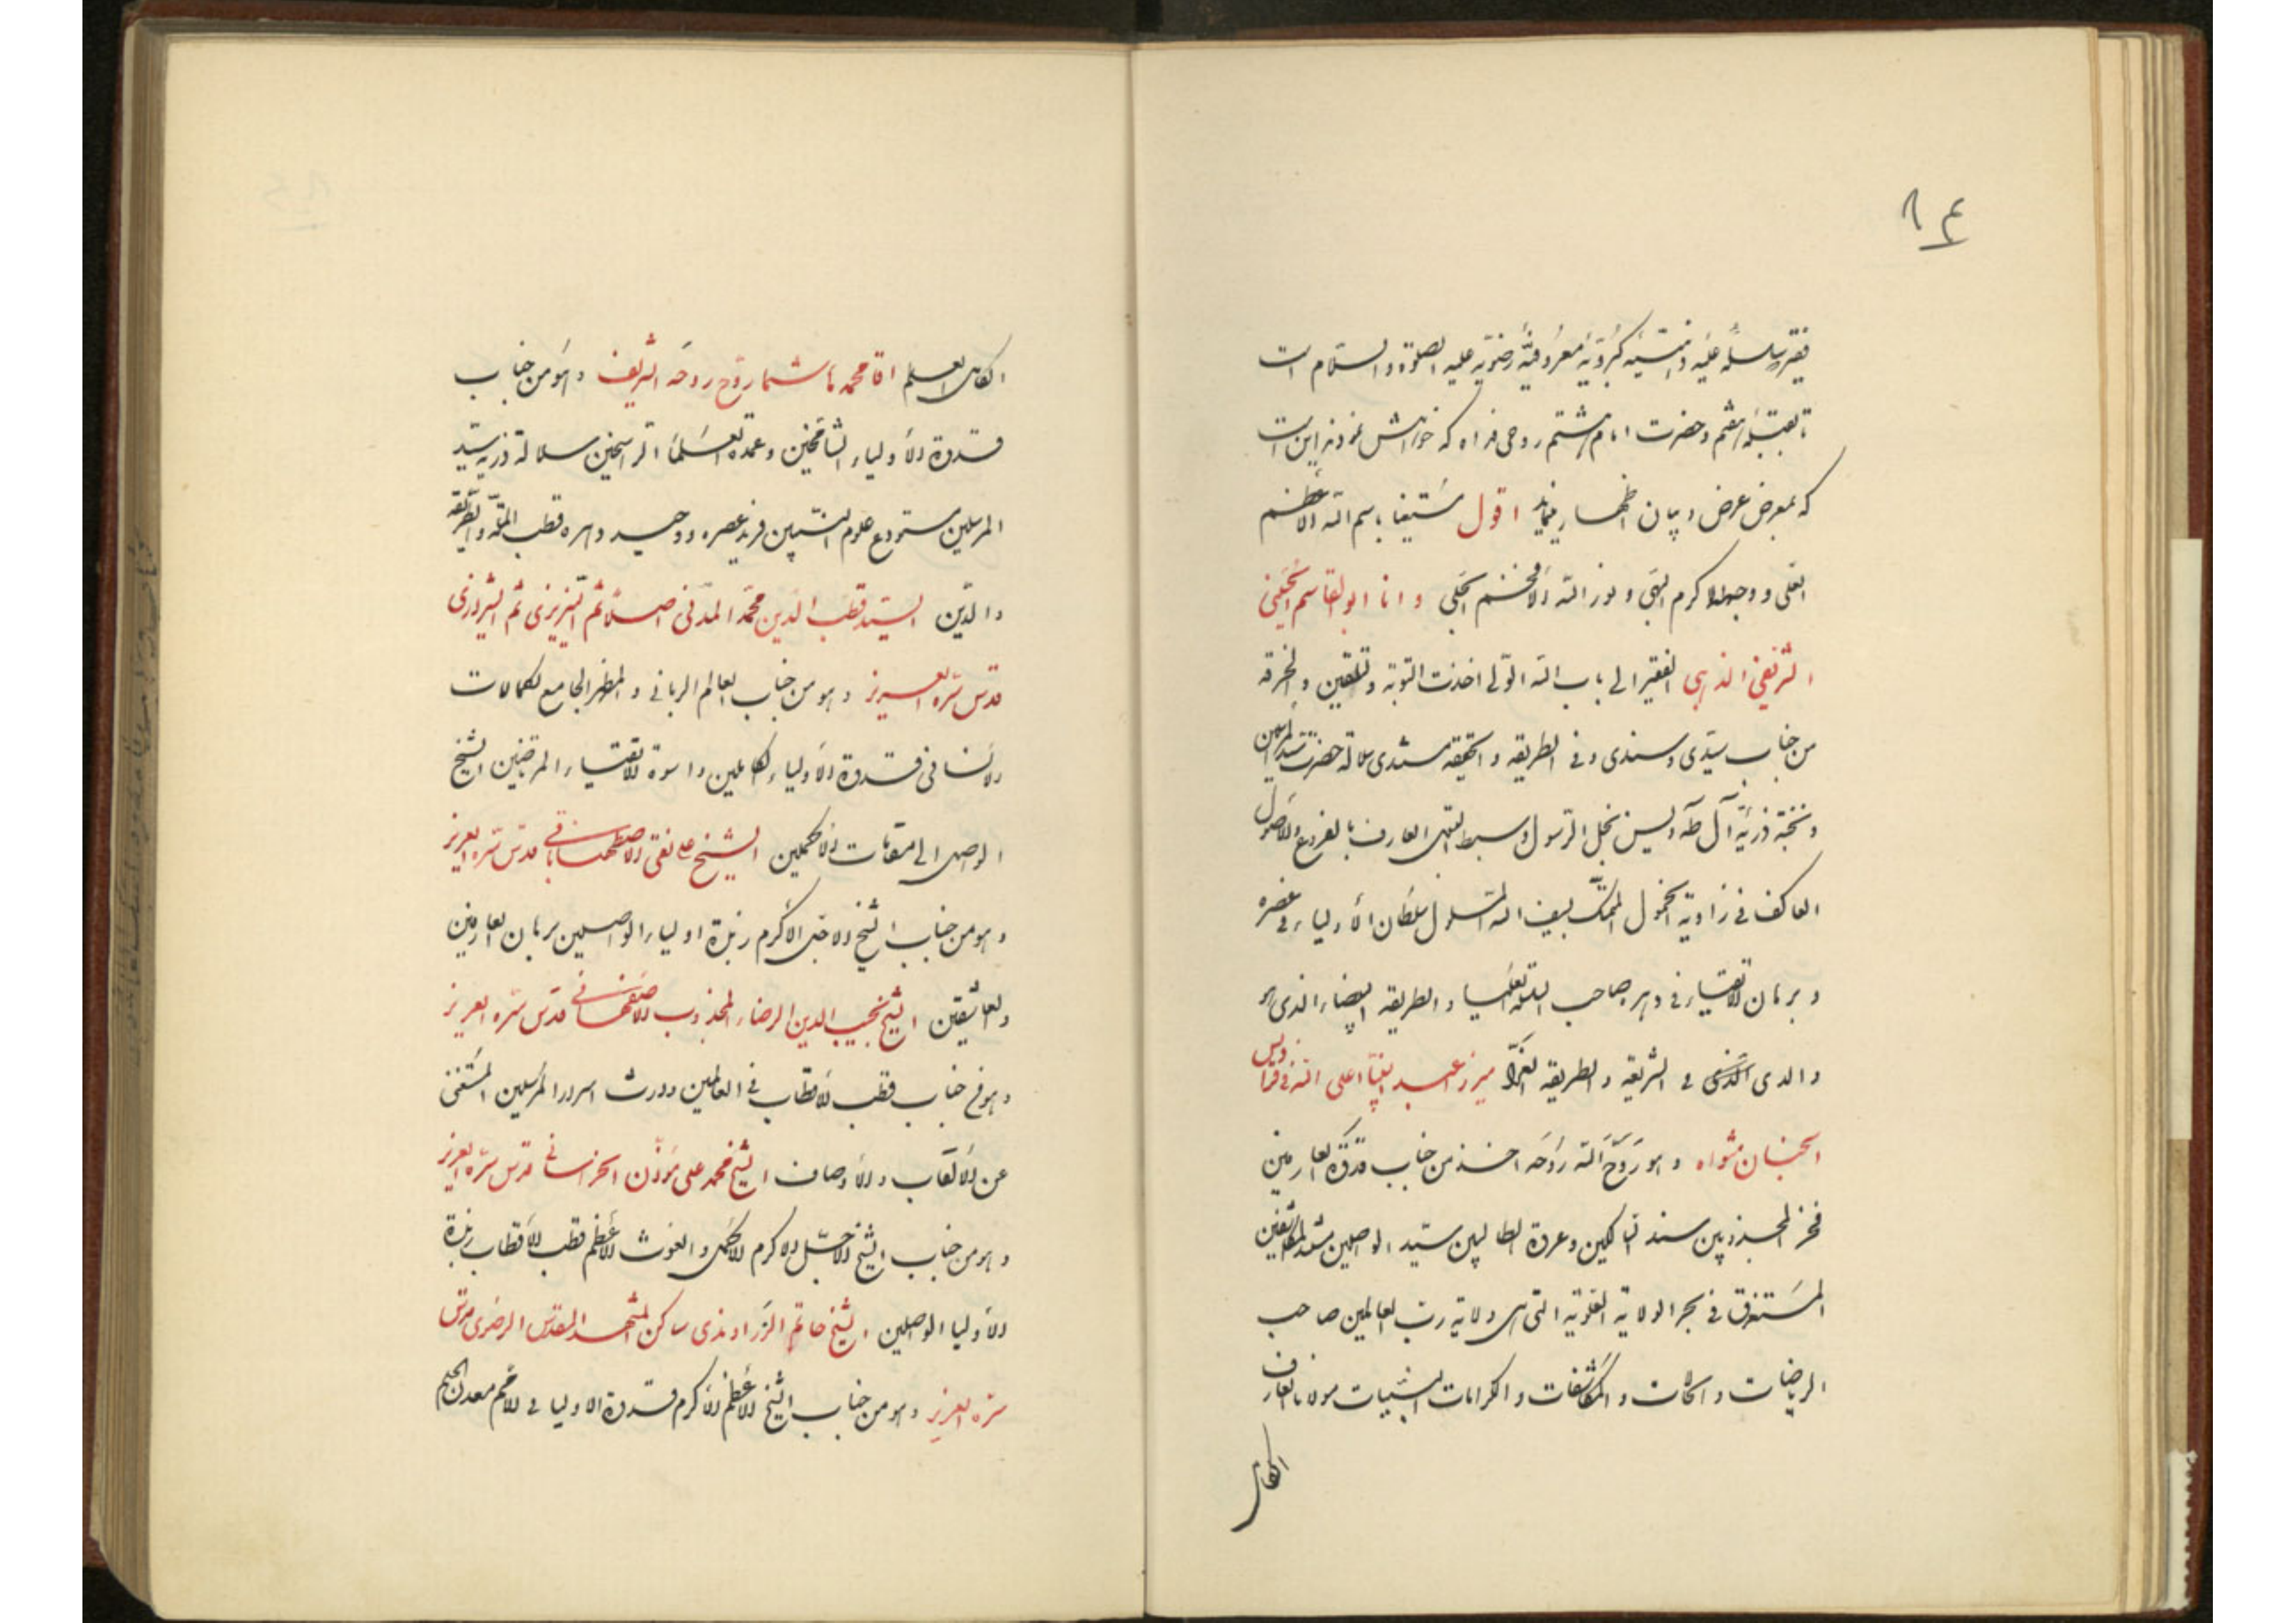 ۸۴
فقیر بسلسله علیّه ذهبیّه کبرویّه معروفیّه رضویّه علیه الصلوة والسّلام است
تا بقبله هفتم و حضرت امام هشتم روحی فداه که خواهش نموده‌اند این است
که بمعرض عرض و بیان اظهار مینماید اقول مستعینا باسم الله الاعظم
العلی و وجهه الاکرم البهی و نور الله الافخم الجلی و انا ابوالقاسم الحسینی
الشریفی الذهبی الفقیر الی باب الله الولی اخذت التوبة و تلقین و الخرقه
من جناب سیّدی و سندی و فی الطریقه و الحقیقه مستندی سلالة حضرت سیّد المرسلین
و نخبة ذریّة آل طه و یس نجل الرسول و سبط البتول العارف بالفروع والاصول
العاکف فی زاویة الخمول المتمسک بسیف الله المسلول سلطان الأولیاء فی عصره
و برهان الاتقیاء فی دهره صاحب السلسلة العلیا و الطریقه البیضاء الذی هو
والدی الذی فی الشریعه و الطریقه الغرّاء میرزا عبدالنبی اعلی الله فی فرادیس
الجنان مثواه و هو روّح الله روحه اخذ من جناب قدوة العارفین
فخر المجذوبین سند السالکین و عروة الطالبین سیّد الواصلین سند المکاشفین
المستغرق فی بحر الولایة العلویة التی هی ولایة ربّ العالمین صاحب
الریاضات و الحالات و المکاشفات و الکرامات البیّنات مولانا العارف
الکامل
الکامل العلم اقا محمد هاشم روّح روحه الشریف و هو من جناب
قدوة الأولیاء الشامخین و عمدة العلماء الراسخین سلالة ذریه سیّد
المرسلین مستودع علوم النبیین فرید عصره و وحید دهره قطب الملّة والطریقة
والدّین السیّد قطب الدّین محمّد المدنی اصلاً ثم التبریزی ثم الشیرازی
قدّس سرّه العزیز و هو من جناب العالم الربانی و المظهر الجامع لکمالات
الانسانی قدوة الأولیاء الکاملین و اسوة الاتقیاء المرتضین الشیخ
الواصل الی مقامات الاکملین الشیخ علی نقی الاصطهباناتی قدّس سرّه العزیز
و هو من جناب الشیخ الاجل الاکرم زبدة اولیاء الواصلین برهان العارفین
والعاشقین الشیخ نجیب الدین الرضاء المجذوب الاصفهانی قدّس سرّه العزیز
و هو من جناب قطب الاقطاب فی العالمین و وارث اسرار المرسلین المستغنی
عن الالقاب و الاوصاف الشیخ محمد علی مؤذّن الخراسانی قدّس سرّه العزیز
و هو من جناب الشیخ الاجل الاکرم الاکمل و الغوث الاعظم قطب الاقطاب زبدة
الأولیا الواصلین الشیخ حاتم الزراوندی ساکن المشهد المقدّس الرضوی قدّس
سرّه العزیز و هو من جناب الشیخ الاعظم الأکرم قدوة الاولیا فی الامم معدن الحکم